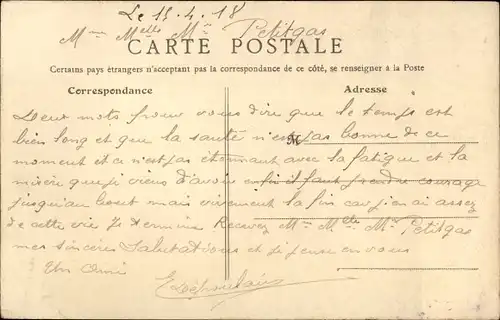 Le 15.4.18
Mme Melles Mr Petitgas
CARTE POSTALE
Certains pays étrangers n'acceptant pas la correspondance de ce côté, se renseigner à la Poste
Correspondance
Adresse
M
Deux mots pour vous dire que le temps est
bien long et que la santé n'est pas bonne de ce
moment et ce n'est pas étonnant avec la fatigue et la
misère que je viens d'avoir enfin il faut prendre courage
jusqu'au bout mais vivement la fin car j'en ai assez
de cette vie Je termine Recevez Mme Melle Mr Petitgas
mes sincères Salutations et je pense en vous
Un Ami